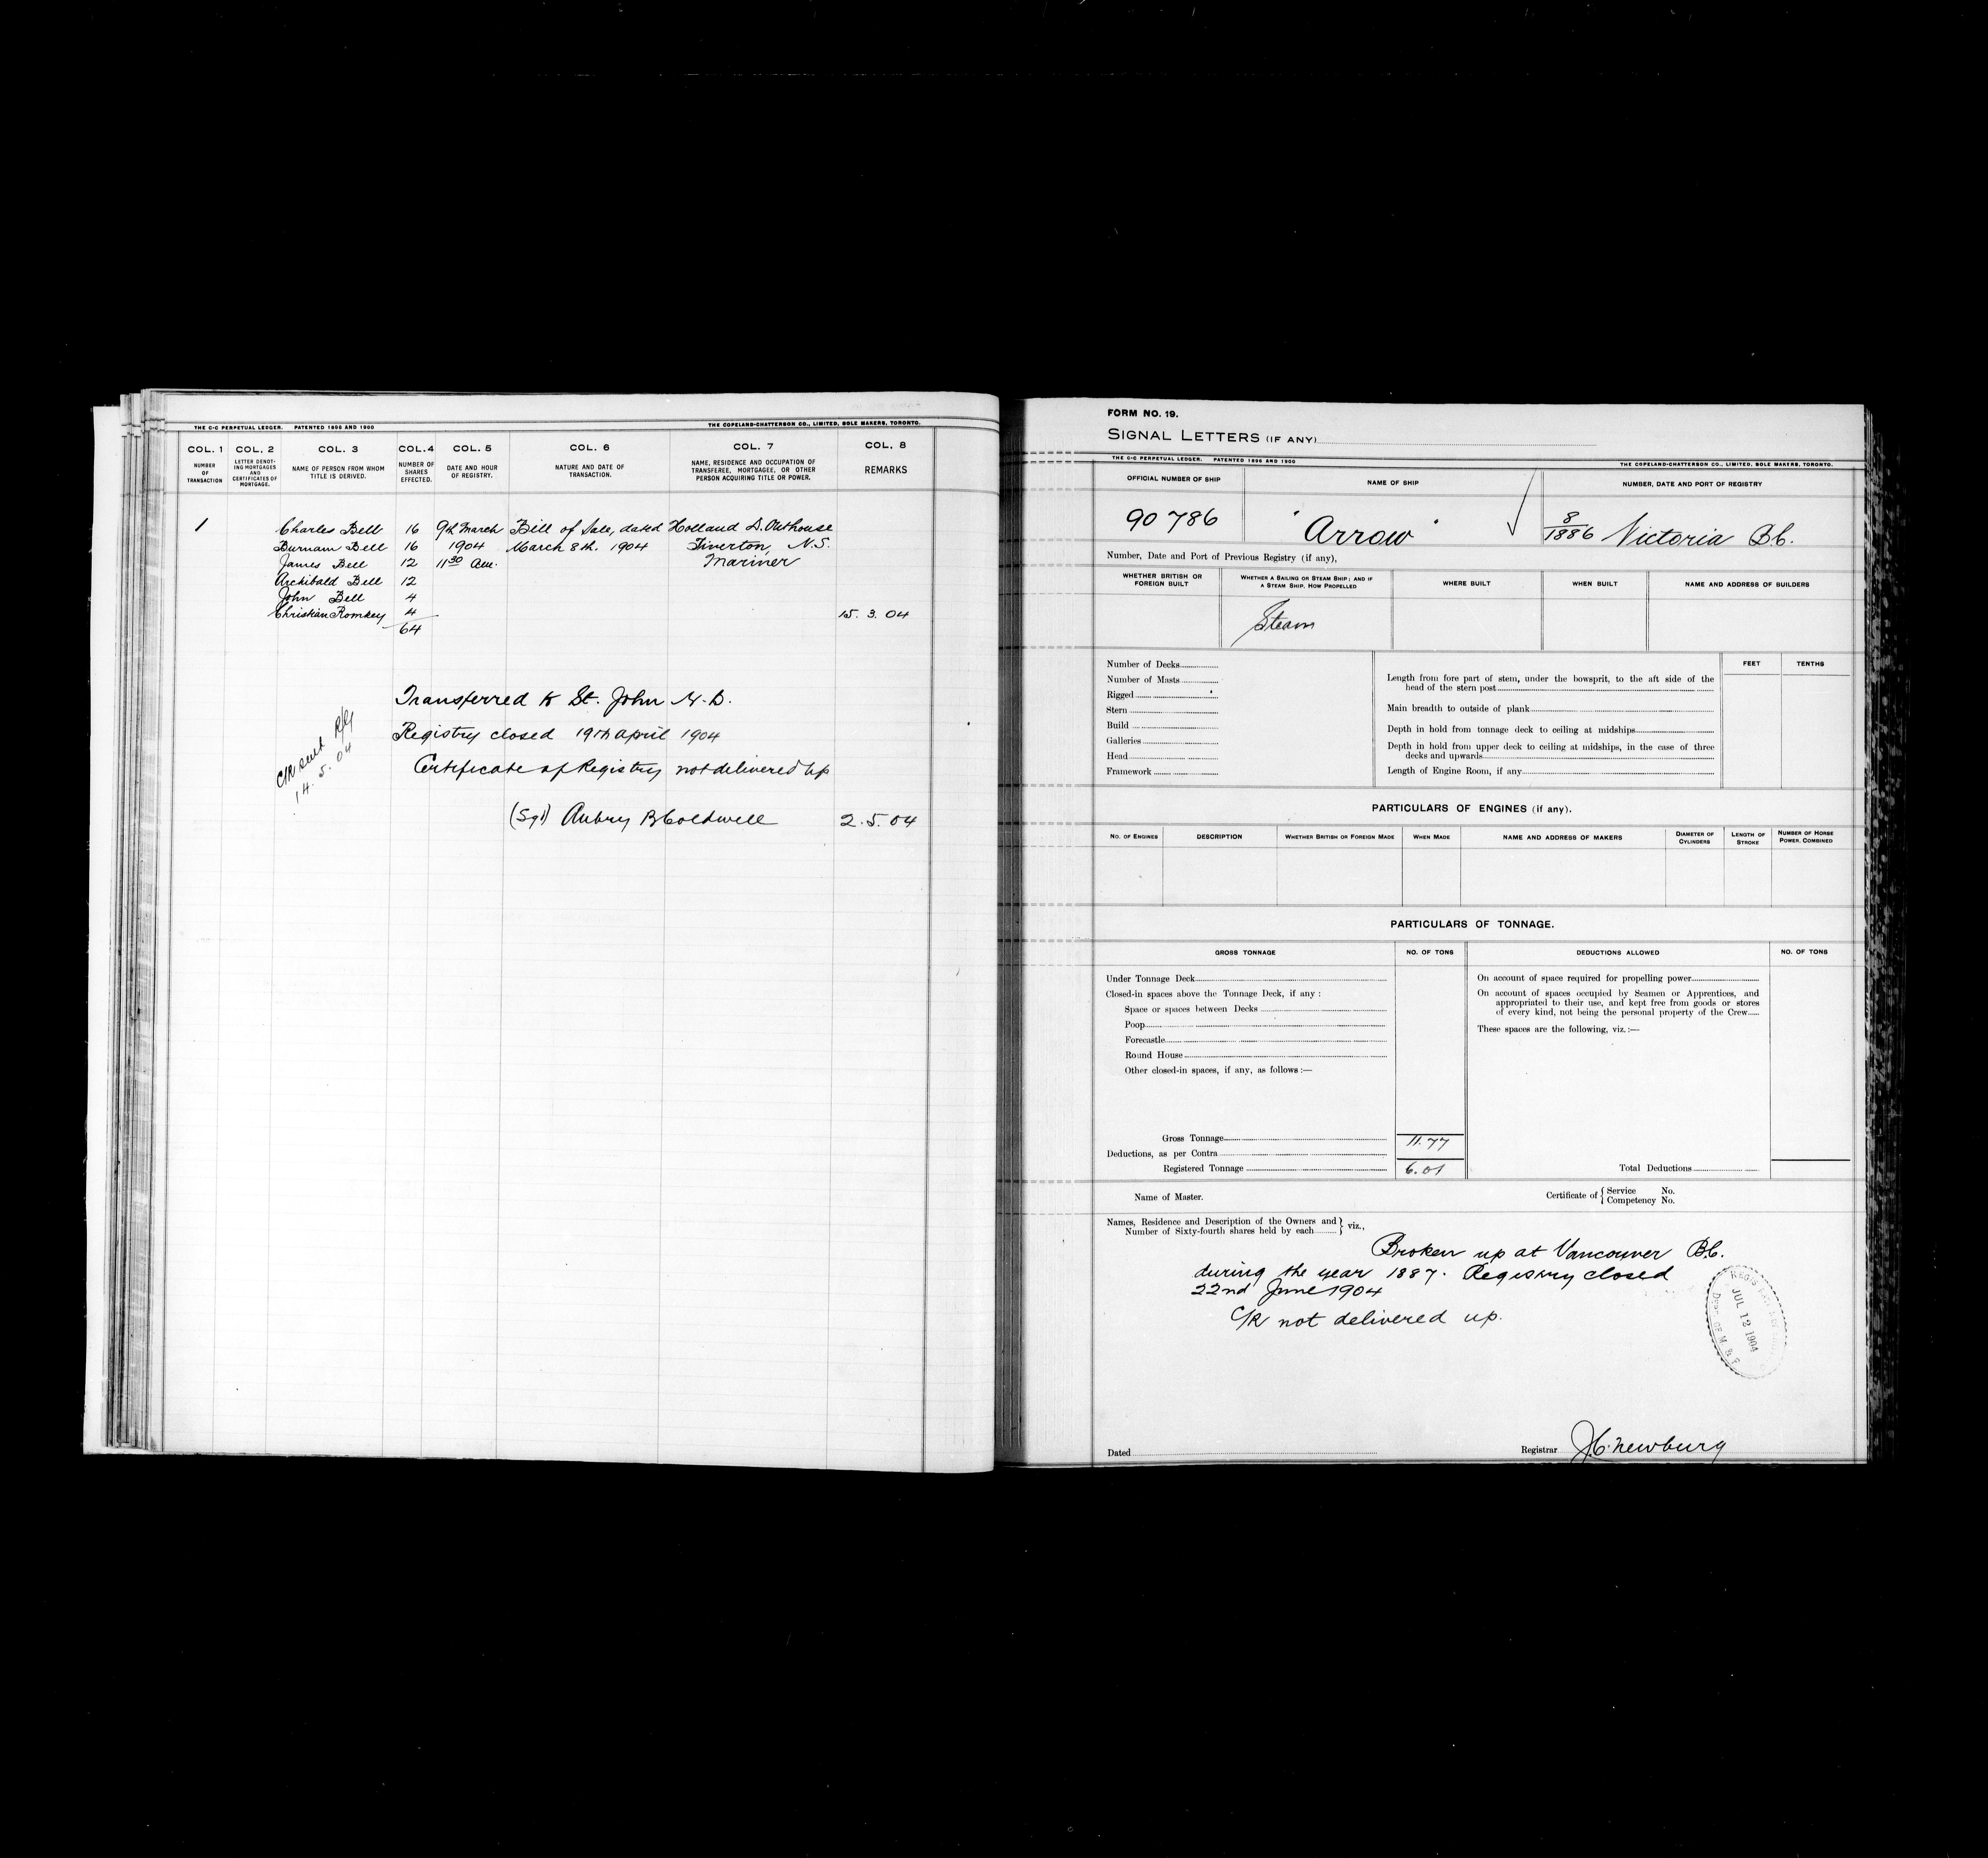 THE C-C PERPETUAL LEDGER. PATENTED 1898 AND 1900 THE COPELAND-CHATTERSON CO., LIMITED, SOLE MAKERS, TORONTO.
COL. 1 COL. 2 COL. 3 COL. 4 COL. 5 COL. 6 COL. 7 COL. 8
NUMBER OF TRANSACTION
LETTER DENOT-ING MORTGAGES AND CERTIFICATES OF MORTGAGE.
NAME OF PERSON FROM WHOM TITLE IS DERIVED.
NUMBER OF SHARES EFFECTED.
DATE AND HOUR OF REGISTRY.
NATURE AND DATE OF TRANSACTION.
NAME, RESIDENCE AND OCCUPATION OF TRANSFEREE, MORTGAGEE, OR OTHER PERSON ACQUIRING TITLE OR POWER.
REMARKS
1 Charles Bell 16 9th March Bill of Sale, dated Holland D. Outhouse
Burnam Bell 16 1904 March 8th. 1904 Tiverton, N.S.
James Bell 12 11 30 Am. Mariner
Archibald Bell 12
John Bell 4
Christian Romkey 4 15. 3. 04
64
Transferred to St. John N. B.
Registry closed 19th April 1904
Certificate of Registry not delivered up
C/R sent R/G
14. 5. 04
(Sgd) Aubry B Coldwell 2. 5. 04
FORM NO. 19.
SIGNAL LETTERS (IF ANY)
THE C-C PERPETUAL LEDGER. PATENTED 1898 AND 1900 THE COPELAND-CHATTERSON CO., LIMITED, SOLE MAKERS, TORONTO.
OFFICIAL NUMBER OF SHIP NAME OF SHIP NUMBER, DATE AND PORT OF REGISTRY
90 786 "Arrow" 8/1886 Victoria B.C.
Number, Date and Port of Previous Registry (if any),
WHETHER BRITISH OR FOREIGN BUILT
WHETHER A SAILING OR STEAM SHIP; AND IF A STEAM SHIP, HOW PROPELLED
WHERE BUILT
WHEN BUILT
NAME AND ADDRESS OF BUILDERS
Steam
FEET TENTHS
Number of Decks
Number of Masts
Rigged
Stern
Build
Galleries
Head
Framework
Length from fore part of stem, under the bowsprit, to the aft side of the
head of the stern post
Main breadth to outside of plank
Depth in hold from tonnage deck to ceiling at midships
Depth in hold from upper deck to ceiling at midships, in the case of three
decks and upwards
Length of Engine Room, if any
PARTICULARS OF ENGINES (if any).
NO. OF ENGINES DESCRIPTION WHETHER BRITISH OR FOREIGN MADE WHEN MADE NAME AND ADDRESS OF MAKERS DIAMETER OF CYLINDERS LENGTH OF STROKE NUMBER OF HORSE POWER. COMBINED
PARTICULARS OF TONNAGE.
GROSS TONNAGE NO. OF TONS DEDUCTIONS ALLOWED NO. OF TONS
Under Tonnage Deck
Closed-in spaces above the Tonnage Deck, if any :
Space or spaces between Decks
Poop
Forecastle
Round House
Other closed-in spaces, if any, as follows :—
On account of space required for propelling power
On account of spaces occupied by Seamen or Apprentices, and
appropriated to their use, and kept free from goods or stores
of every kind, not being the personal property of the Crew
These spaces are the following, viz. :—
Gross Tonnage 11.77
Deductions, as per Contra
Registered Tonnage 6.01 Total Deductions
Name of Master. Certificate of { Service No.
Competency No.
Names, Residence and Description of the Owners and
Number of Sixty-fourth shares held by each } viz.,
Broken up at Vancouver B.C.
during the year 1887. Registry closed
22nd June 1904
C/R not delivered up.
JUL 12 1904
DEPT. OF M. & F.
Dated Registrar J.C. Newbury